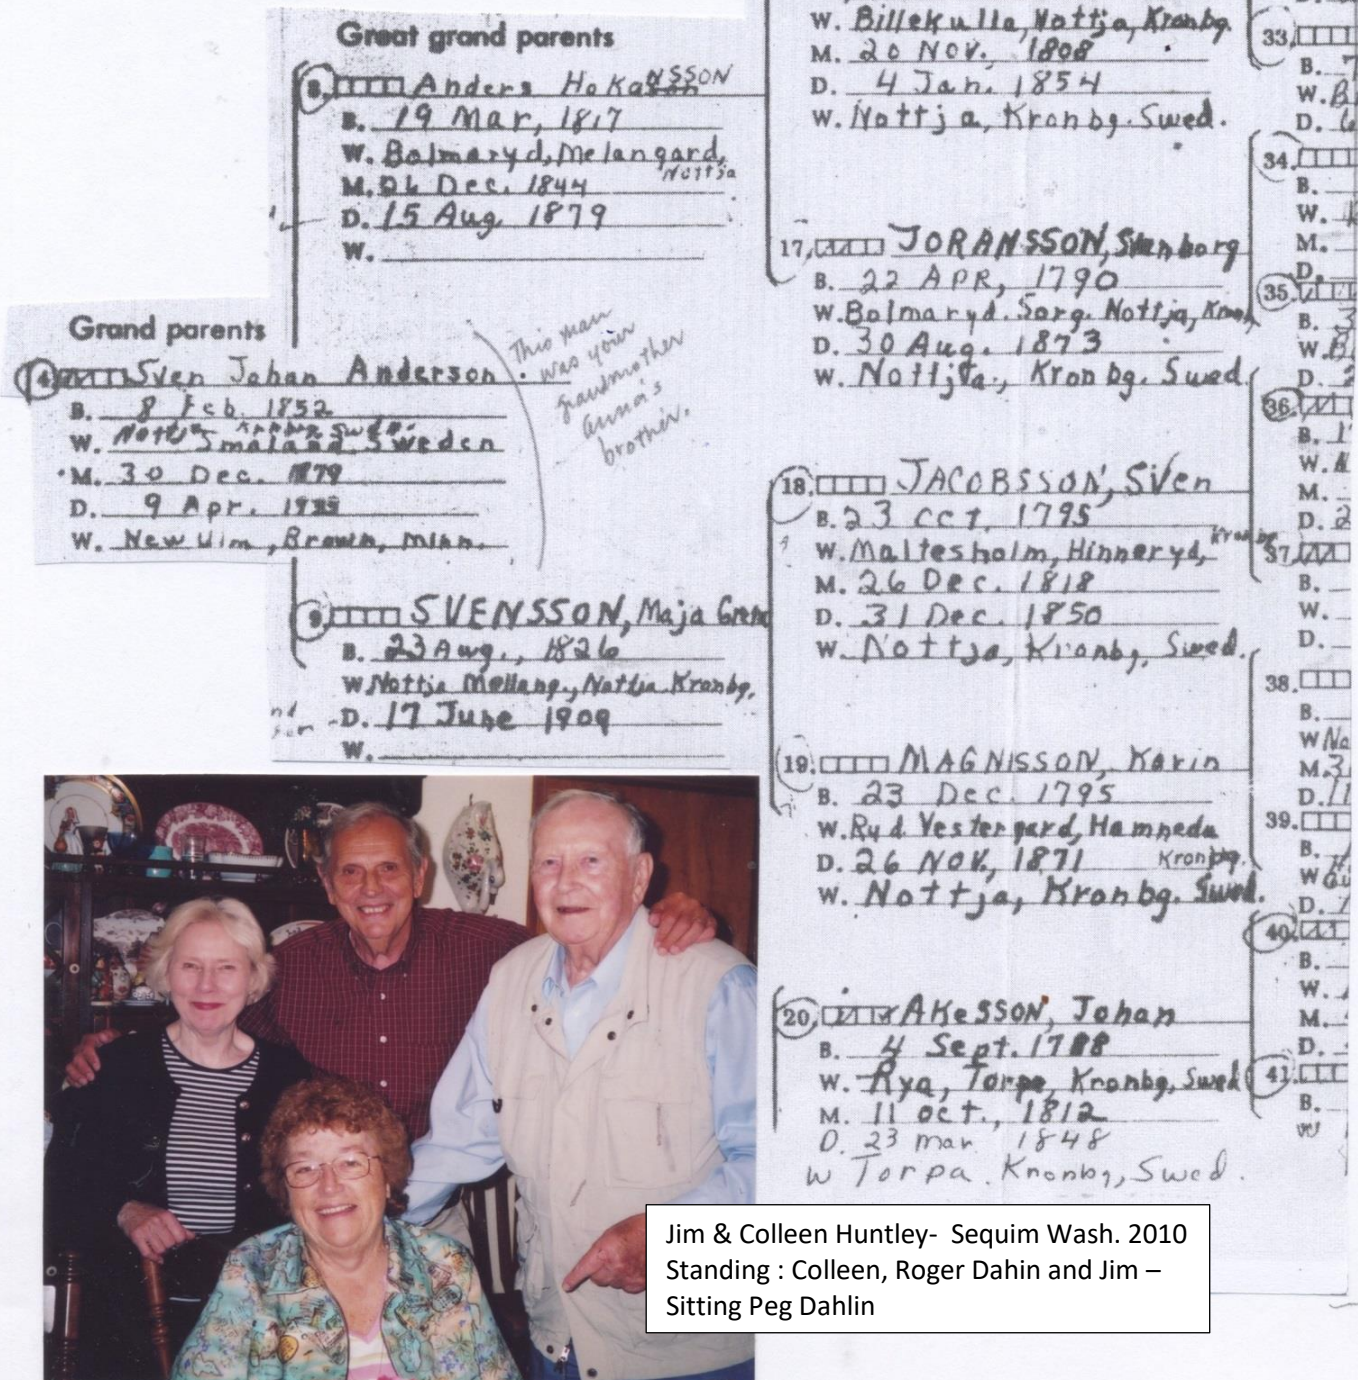 Great grand parents
8. Anders HoKaNSSON
B. 19 Mar, 1817
W. Bolmaryd, Melangard,
Nottja
M. 26 Dec. 1844
D. 15 Aug 1879
W.
Grand parents
4. Sven Johan Anderson
B. 8 Feb. 1852
W. Nottja Kronbg Swed.
Smaland. Sweden
M. 30 Dec. 1879
D. 9 Apr.
W. New Ulm, Brown, Minn.
This man
was your
grandmother
Anna's
brother.
9. SVENSSON, Maja Greta
B. 23 Aug., 1826
W. Nottja Mellang., Nottja Kronbg.
D. 17 June 1909
W.
W. Billekulla, Nottja, Kronbg.
M. 20 NOV. 1808
D. 4 Jan. 1854
W. Nottja, Kronbg. Swed.
17. JORANSSON, Svenborg
B. 22 APR, 1790
W. Bolmaryd. Sorg. Nottja, Kron
D. 30 Aug. 1873
W. Nottja, Kronbg. Swed.
18. JACOBSSON, Sven
B. 23 OCT. 1795
W. Maltesholm, Hinneryd, Kronbg
M. 26 Dec. 1818
D. 31 Dec. 1850
W. Nottja, Kronbg, Swed.
19. MAGNISSON, Karin
B. 23 Dec. 1795
W. Ryd Vestergard, Hamneda
Kronbg.
D. 26 NOV, 1871
W. Nottja, Kronbg. Swed.
20. AKeSSON, Johan
B. 4 Sept. 1788
W. Rya, Torpa, Kronbg, Swed
M. 11 oct., 1812
D. 23 mar 1848
W Torpa. Kronbg, Swed.
33.
B.
W. B
D.
34.
B.
W.
M.
D.
35.
B.
W. B
D.
36.
B. 1
W.
M.
D. 2
37.
B.
W.
D.
38.
B.
W Na
M. 3
D. 11
39.
B.
W
D.
40.
B.
W.
M.
D.
41.
B.
W
Jim & Colleen Huntley- Sequim Wash. 2010
Standing : Colleen, Roger Dahin and Jim –
Sitting Peg Dahlin